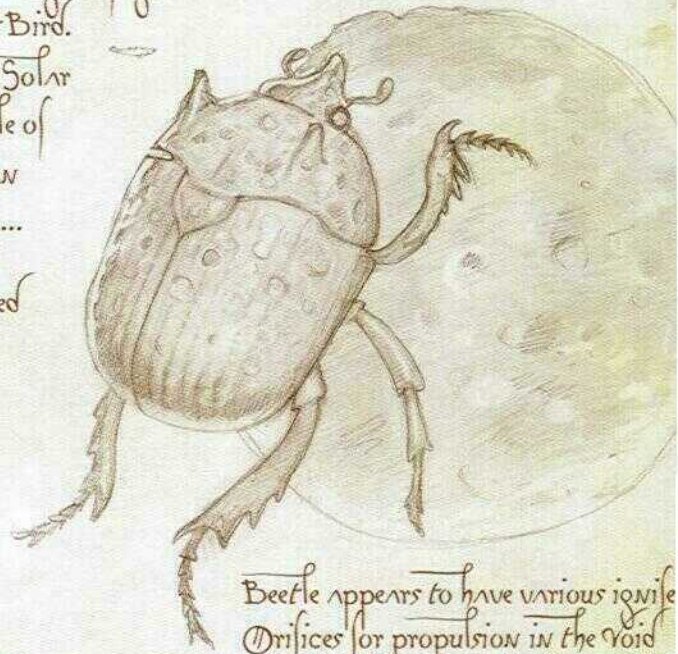 Bird.
Solar
le of
N
...
ed
Beetle appears to have various ignife
Orifices for propulsion in the Void